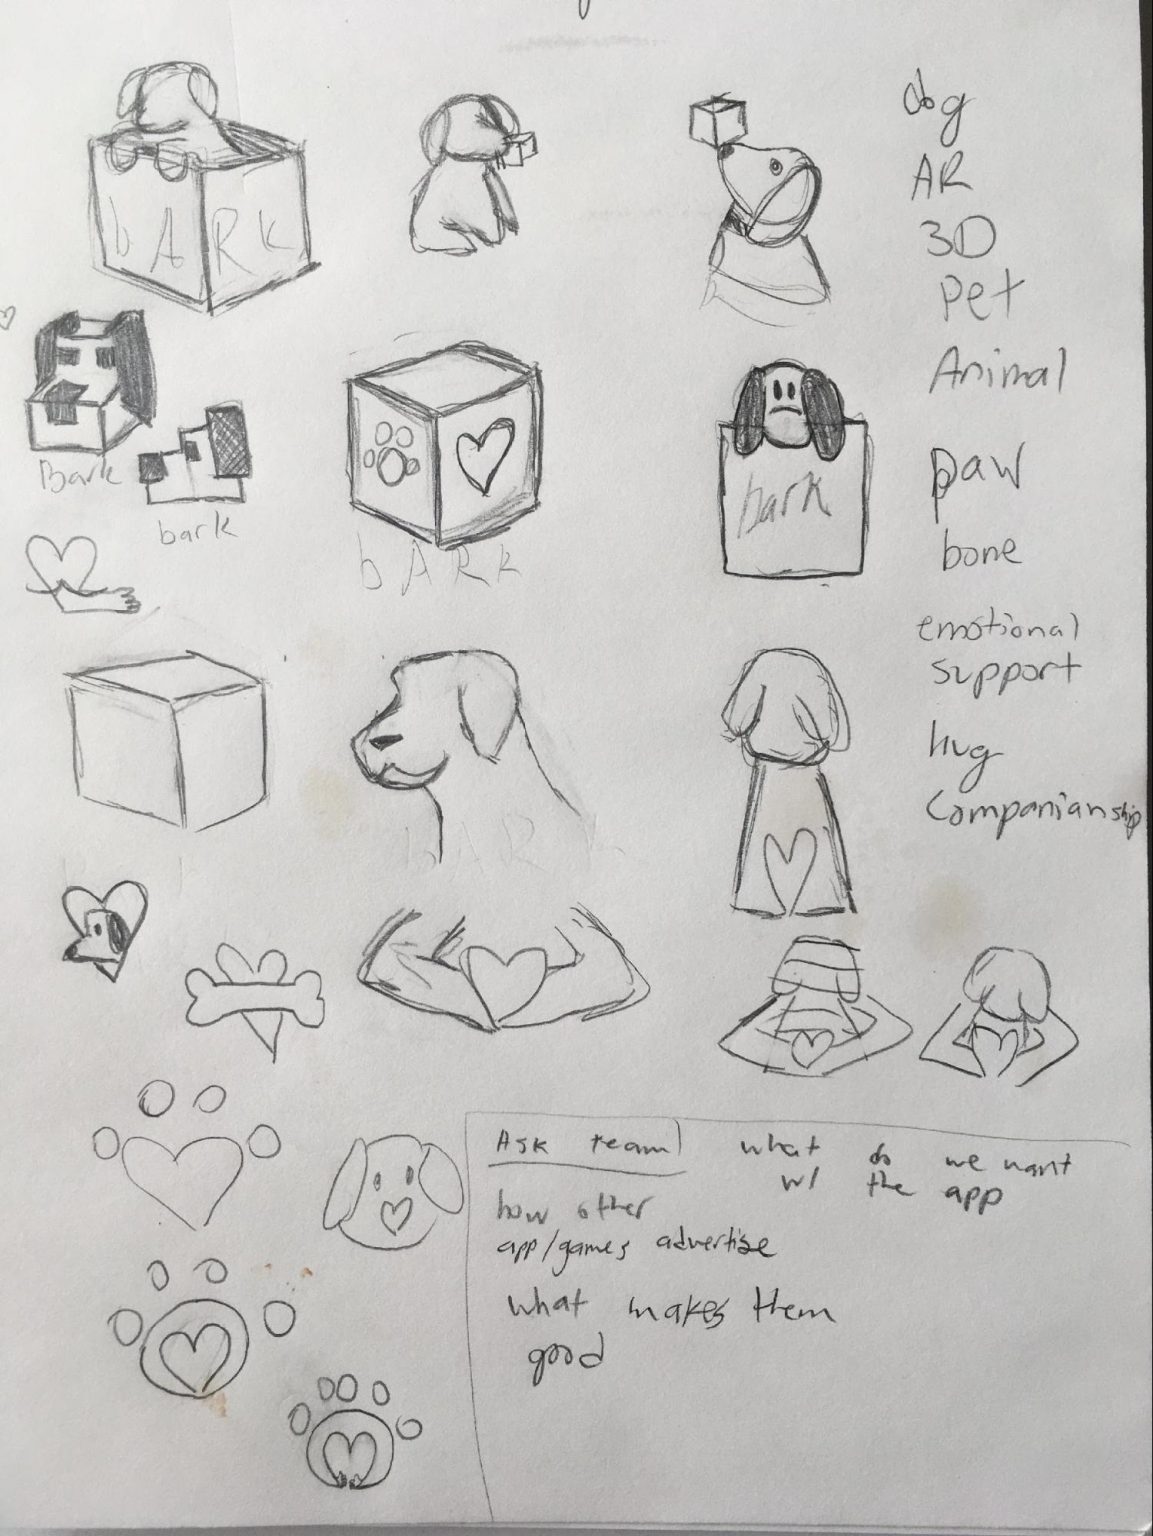 bARK
Bark
bark
bARK
bark
bARK
dog
AR
3D
pet
Animal
paw
bone
emotional
support
hug
Companianship
Ask team
what do we want
w/ the app
how other
app/games advertise
what makes them
good